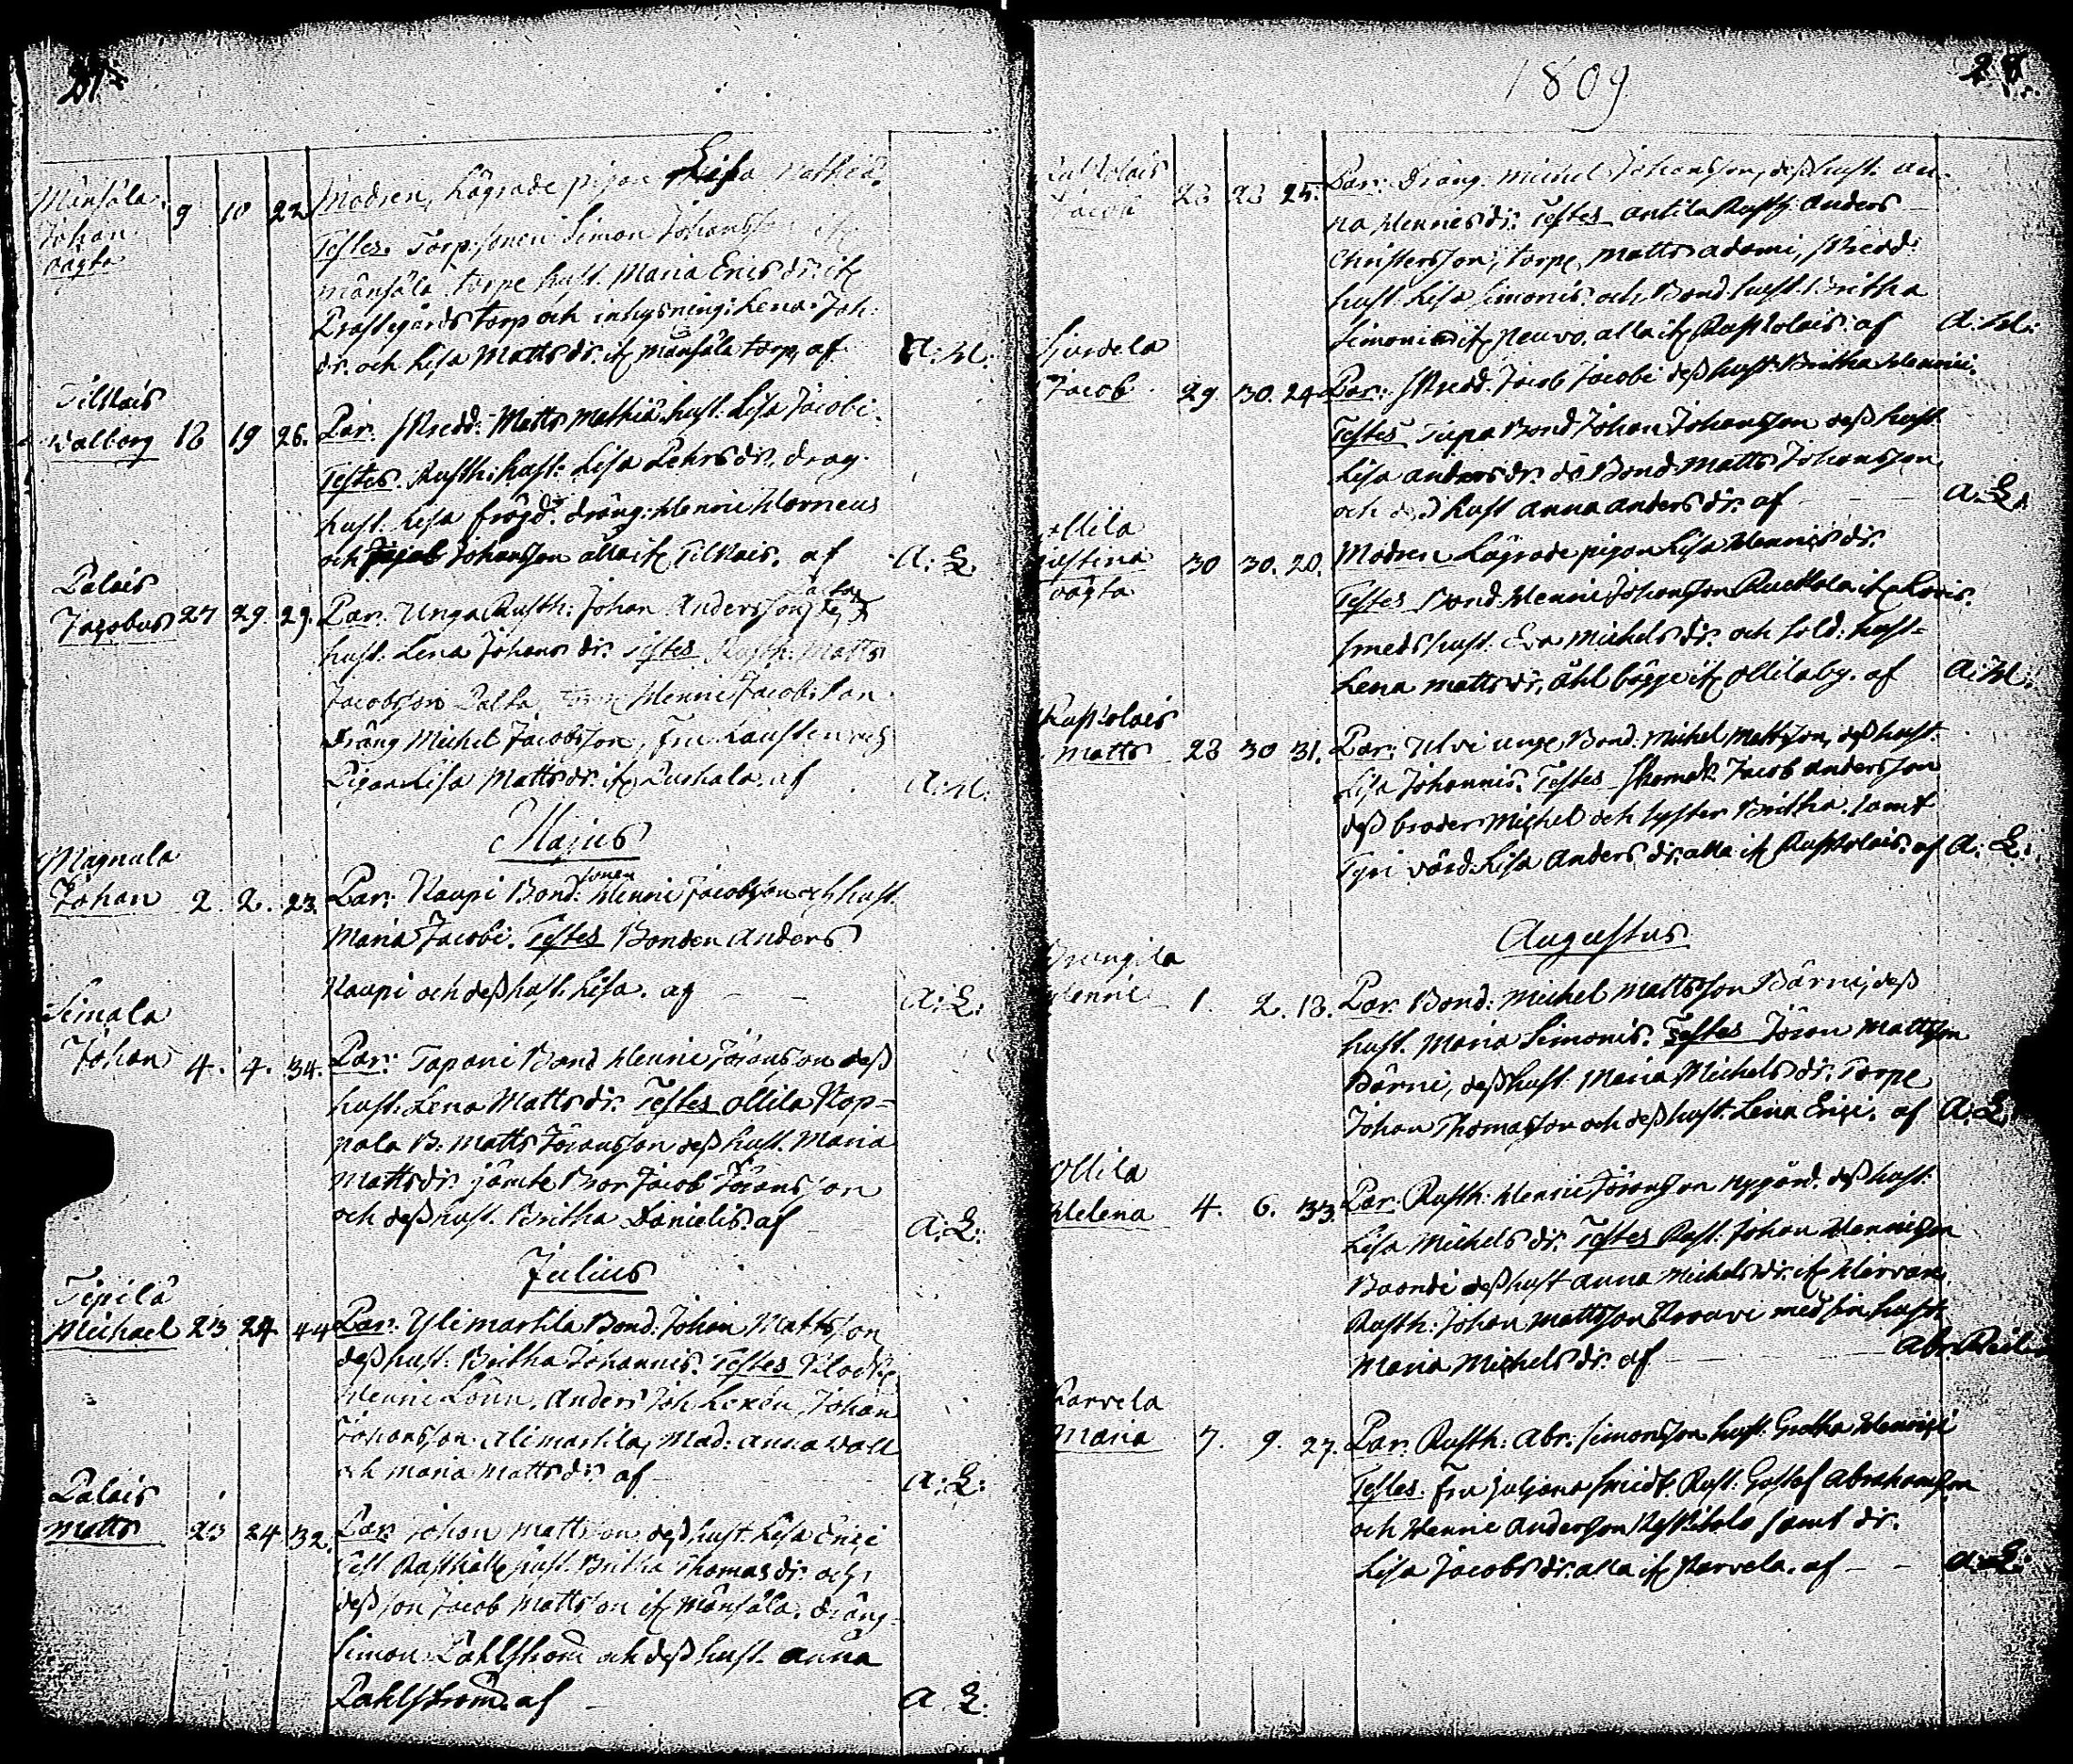 27.
Månsåla 9 10 22 Modren, Lägrade pigan Lisa Mathiæ.
Johan Testes. Torp. sonen Simon Johansson
oägta Månsåla torpe hust. Maria Erics dr. if
Prästegårds torp och inhysning: Lena Joh:
dr. och Lisa Matts dr. if Månsåla torp, af A: H:
Tilkais
Walborg 18 19 26. Par: Skredd: Matts Mathiæ hust: Lisa Jacobi.
Testes. Rusth: hust: Lisa Pehrs dr. drag.
hust. Lisa Frögd. dräng: Henric Horneus
och Johansson alla if Tilkais. af A: L.
Palais
Jacobus 27 29 29. Par. Unga Rusth: Johan Andersson
hust. Lena Johans dr. Testes Rusth: Matts
Jacobsson Palta Henric Jacobsson
Dräng Michel Jacobsson, Fru
Pigan Lisa Matts dr. if Puhkala. af A: H:
Majus
Magnula
Johan 2. 2. 23. Par: Kaupi Bond: sonen Henric Jacobsson och hust.
Maria Jacobi. Testes Bonden Anders
Kaupi och deß hust. Lisa. af A: L:
Simala
Johan 4. 4. 34. Par: Tapani Bond Henric Jöransson deß
hust. Lena Matts dr. Testes Ollila Kop-
pala B. Matts Jöransson deß hust. Maria
Matts dr. jämte Bror Jacob Jöransson
och deß hust. Britha Danielis. af A: L:
Julius
Tipilä
Michael 23 24 44 Par. Ylimartila Bond: Johan Mattsson
deß hust: Britha Johannis. Testes Klock:
Henric Lönn, Anders Joh Lexén, Johan
Johansson Alimartila, Mad: Anna Wall
och Maria Matts dr. af A: L:
Palais
Matts 23 24 32. Par: Johan Mattsson deß hust. Lisa Erici
Test. Rusthåll: hust. Britha Thomas dr. och
deß son Jacob Mattsson if Månsåla. dräng
Simon Pahlstrom och deß hust. Anna
Pahlstrom. af A: L:
1809
28.
Ruskolais 23 23 25. Par: Dräng Michel Johansson, deß hust. An-
Jacob na Henrics dr. Testes Antila Rusth. Anders
Christersson, torpe, Matts Adami, Skredd:
hust. Lisa Simonis. och Bond. hust. Britha
Simonis if Neuvo. alla if Ruskolais. af A: H:
Sjurdela
Jacob 29 30. 24 Par: Skredd. Jacob Jacobi deß hust. Britha Henrici.
Testes Bond Johan Johansson deß hust.
Lisa Anders dr. dö Bond. Matts Johansson
och deß hust Anna Anders dr. af A: L.
Ollila
Justina 30 30. 20. Modren Lägrade pigan Lisa Henrics dr.
oägta Testes Bond. Henric Johansson Ruckola if
smeds hust. Eva Michels dr. och sold: hust-
Lena Matts dr. Åhlbägge if Ollila by. af A: H:
Ruskolais
Matts 28 30 31. Par: Ulvi unge Bond: Michel Mattsson, deß hust.
Lisa Johannis. Testes Skomak. Jacob Andersson
deß broder Michel och syster Britha. samt
Tyri värd. Lisa Anders dr. alla if Ruskolais. af A: L:
Augustus
Brungila
Henric 1. 2. 18. Par. Bond: Michel Mattsson Bärni, deß
hust. Maria Simonis. Testes Jöran Mattsson
Bärni, deß hust. Maria Michels dr. Torpe
Johan Thomasson och deß hust. Lena Erici. af A: L.
Ollila
Helena 4. 6. 33. Par: Rusth: Henric Jöransson Nygård. deß hust.
Lisa Michels dr. Testes Rust. Johan Henricsson
Baondi deß hust Anna Michels dr. if
Rusth: Johan Mattsson Krouvi med sin hust:
Maria Michels dr. af Abr.
Karvela
Maria 7. 9. 27. Par. Rusth: Abr: Simonsson hust: Gretha Henrici
Testes. Fru Juljana Smidt. Rust: Gostaf Abrahamsson
och Henric Andersson samt dr.
Lisa Jacobs dr. alla if Karvela. af A: L: